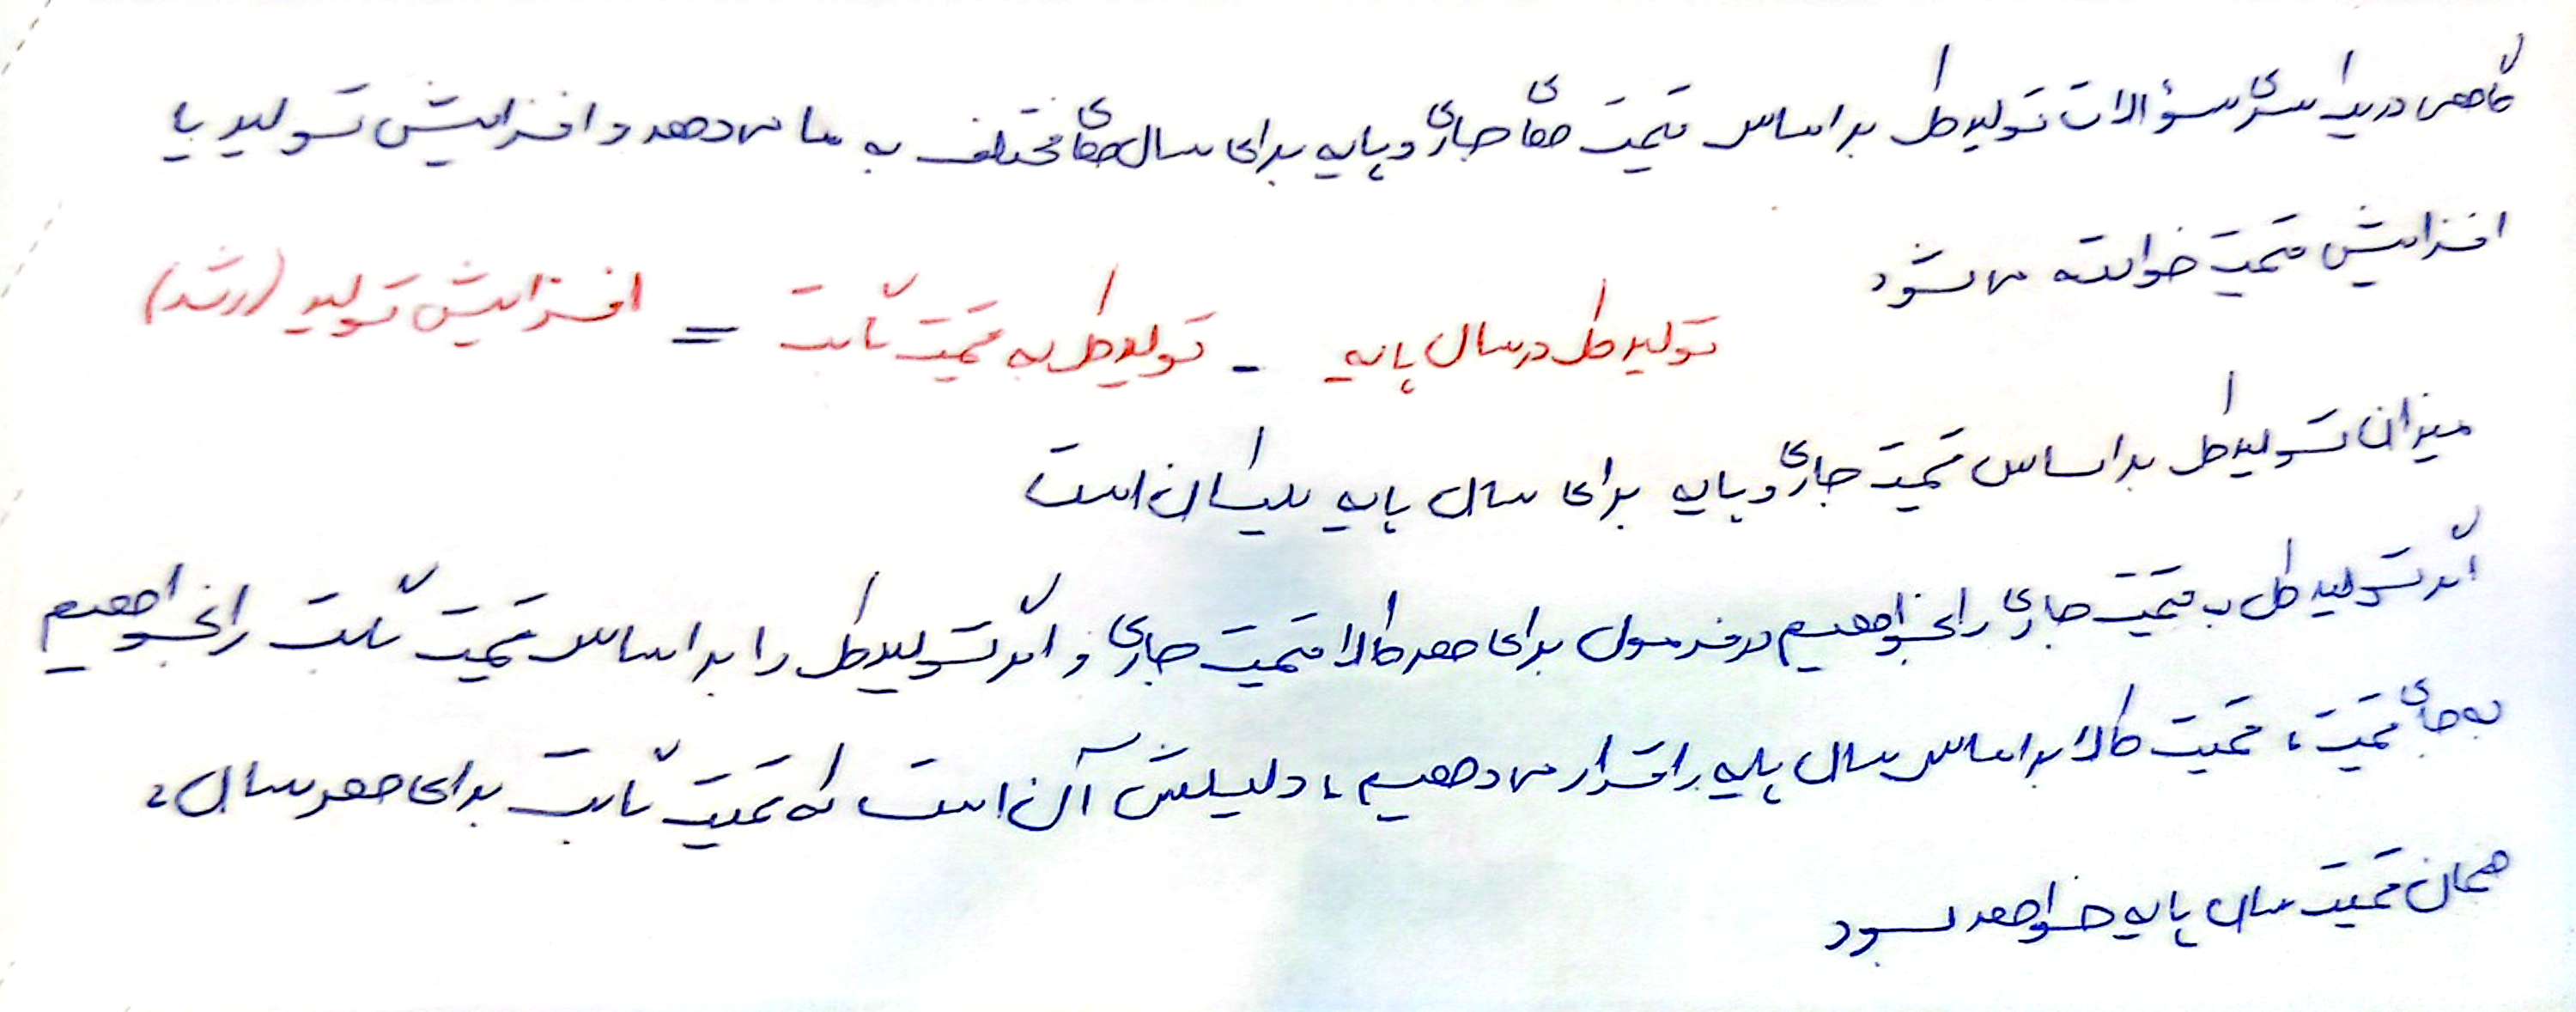 گاهی در یک سری سؤالات تولید کل بر اساس قیمت های جاری و پایه برای سال های مختلف به ما می دهد و افزایش تولید یا
افزایش قیمت خواسته می شود
تولید کل در سال پایه - تولید کل به قیمت ثابت = افزایش تولید (رشد)
میزان تولید کل بر اساس قیمت جاری و پایه برای سال پایه یکسان است
اگر تولید کل به قیمت جاری را بخواهیم در فرمول برای هر کالا قیمت جاری و اگر تولید کل را بر اساس قیمت ثابت را بخواهیم
به جای قیمت ، قیمت کالا بر اساس سال پایه را قرار می دهیم ، دلیلش آن است که قیمت ثابت برای هر سال ،
همان قیمت سال پایه خواهد بود